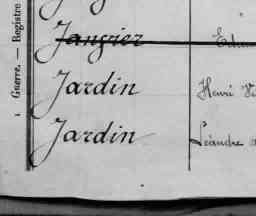 Guerre. — Registre
Janvier
Jardin Henri
Jardin Léandre